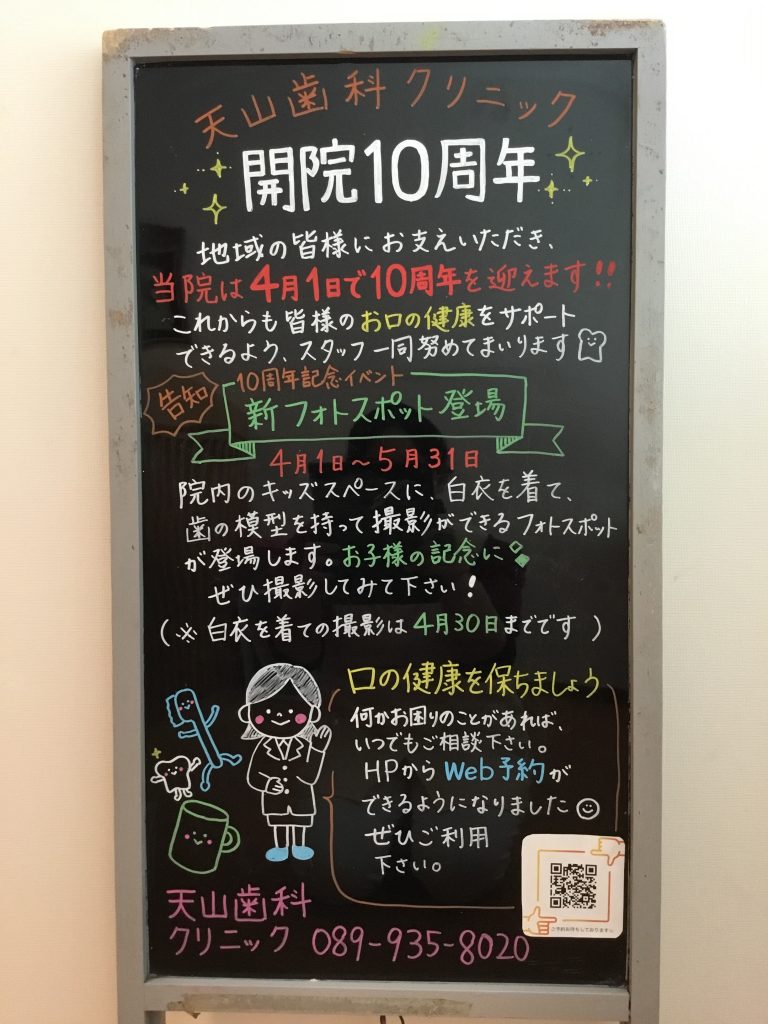 天山歯科クリニック
開院10周年
地域の皆様にお支えいただき、
当院は4月1日で10周年を迎えます!!
これからも皆様のお口の健康をサポート
できるよう、スタッフ一同努めてまいります
告知
10周年記念イベント
新フォトスポット登場
4月1日～5月31日
院内のキッズスペースに、白衣を着て、
歯の模型を持って撮影ができるフォトスポット
が登場します。お子様の記念に
ぜひ撮影してみて下さい!
(※白衣を着ての撮影は4月30日までです)
口の健康を保ちましょう
何かお困りのことがあれば、
いつでもご相談下さい。
HPからWeb予約が
できるようになりました
ぜひご利用
下さい。
ご予約お待ちしております
天山歯科
クリニック 089-935-8020